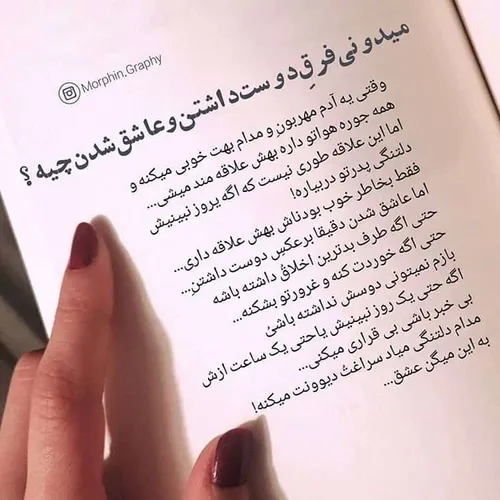 Morphin.Graphy
میدونی فرقِ دوست‌داشتن و عاشق‌شدن چیه ؟
وقتی یه آدم مهربون و مدام بهت خوبی میکنه و
همه جوره هواتو داره بهش علاقه مند میشی...
اما این علاقه طوری نیست که اگه یروز نبینیش
دلتنگی پدرتو دربیاره!
فقط بخاطر خوب بودناش بهش علاقه داری...
اما عاشق شدن دقیقا برعکسِ دوست داشتنِ...
حتی اگه طرف بدترین اخلاق داشته باشه
حتی اگه خوردت کنه و غرورتو بشکنه...
بازم نمیتونی دوسش نداشته باشی
اگه حتی یک روز نبینیش یاحتی یک ساعت ازش
بی خبر باشی بی قراری میکنی...
مدام دلتنگی میاد سراغت دیوونت میکنه!
به این میگن عشق...